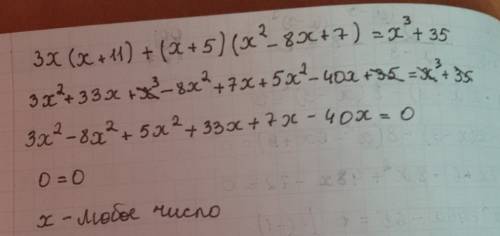 3x(x+11)+(x+5)(x²-8x+7)=x³+35
3x²+33x+x³-8x²+7x+5x²-40x+35=x³+35
3x²-8x²+5x²+33x+7x-40x=0
0=0
x-любое число